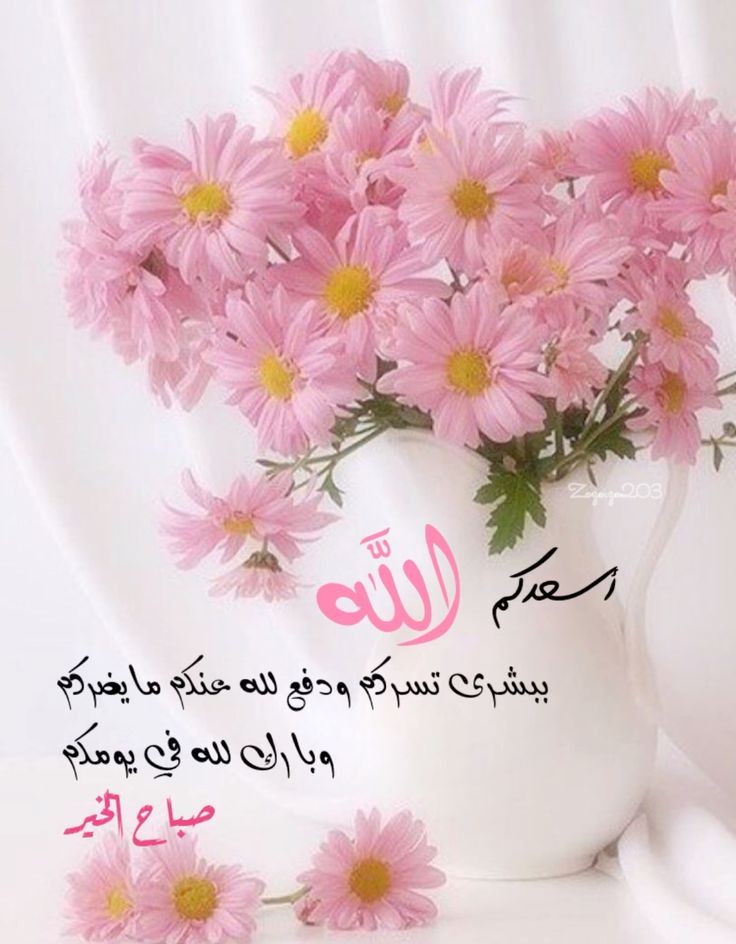 Zozoza203
أسعدكم الله
ببشرى تسركم ودفع لله عنكم ما يضركم
وبارك لله في يومكم
صباح الخير